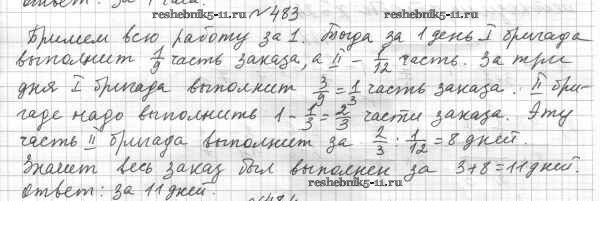 ответ: за 1 часа.
reshebnik5-11.ru
№483
Примем всю работу за 1. Тогда за 1 день I бригада
выполнит 1/9 часть заказа, а II – 1/12 часть. За три
дня I бригада выполнит 3/9=1/3 часть заказа. II бри-
гаде надо выполнить 1-1/3=2/3 части заказа. Эту
часть II бригада выполнит за 2/3:1/12=8 дней.
Значит весь заказ был выполнен за 3+8=11 дней.
Ответ: за 11 дней.
reshebnik5-11.ru
№484